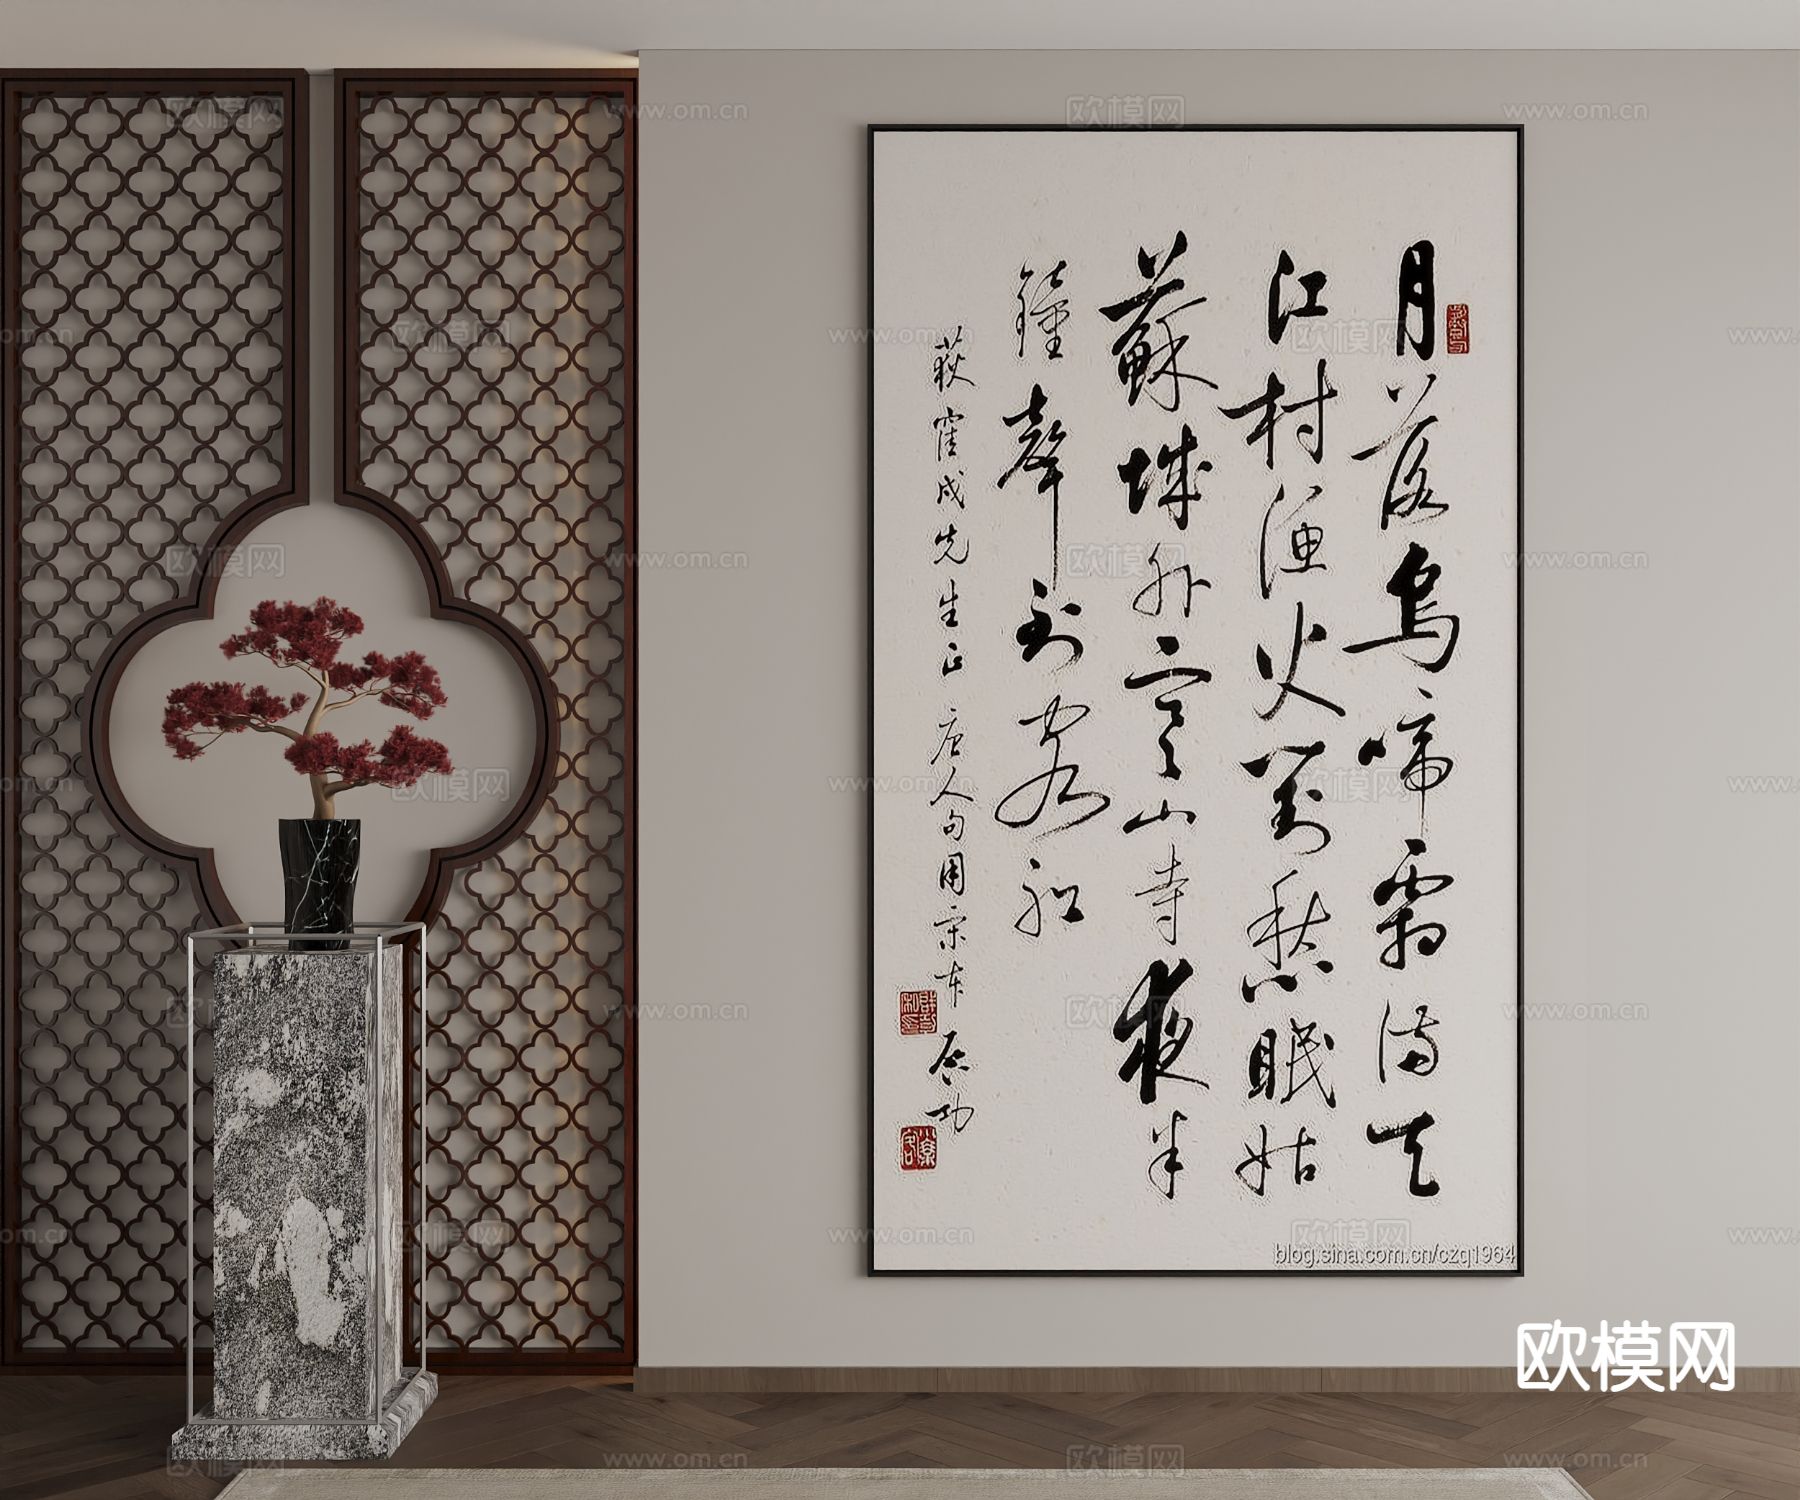 月落烏啼霜滿天
江村漁火對愁眠姑
蘇城外寒山寺夜半
鐘聲到客船
荻成先生正 唐人句用宋本 启功
blog.sina.com.cn/czq1964
欧模网
www.om.cn